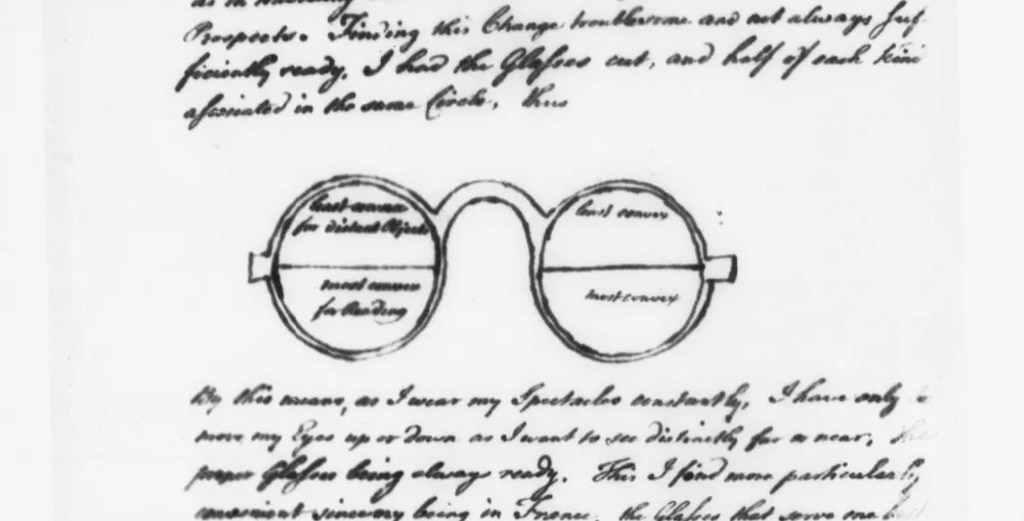 Prospects. Finding this Change troublesome and not always suf-
ficiently ready, I had the Glasses cut, and half of each kind
associated in the same Circle, thus
least convex
for distant Objects
least convex
most convex
for Reading
most convex
By this means, as I wear my Spectacles constantly, I have only to
move my Eyes up or down as I want to see distinctly far or near, the
proper Glasses being always ready. This I find more particularly
convenient since my being in France, the Glasses that serve one best